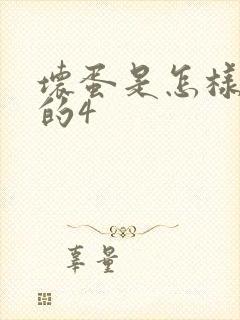 壞蛋是怎樣
的4
辜量